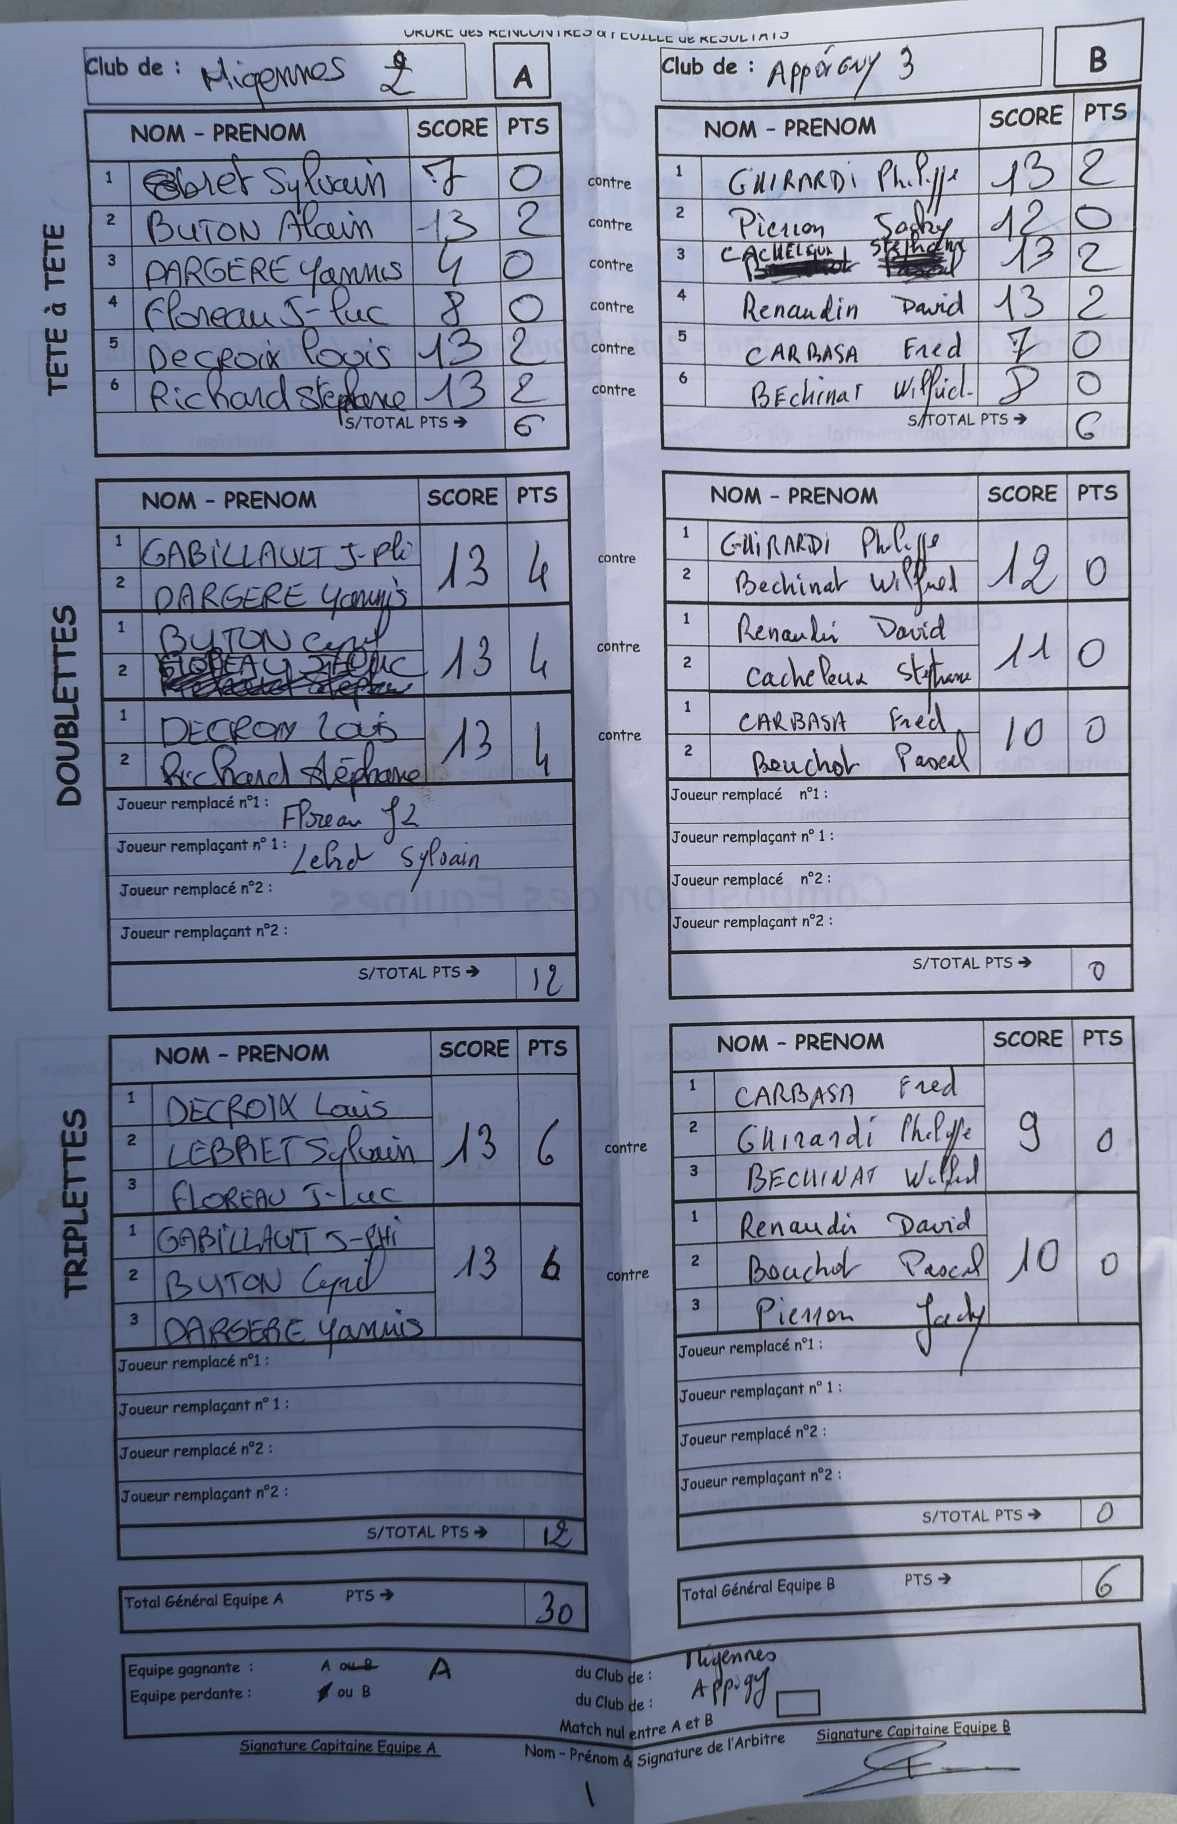 ORDRE des RENCONTRES & FEUILLE de RESULTATS
Club de : Migennes 2 A
Club de : Appoigny 3 B
TETE à TETE
NOM - PRENOM SCORE PTS
NOM - PRENOM SCORE PTS
1 Sylvain 7 0 contre 1 GHIRARDI Philippe 13 2
2 BUTON Alain 13 2 contre 2 Pierron Jacky 12 0
3 DARGERE Yannis 4 0 contre 3 CACHELEUX Stéphane 13 2
4 Floreau J-Luc 8 0 contre 4 Renaudin David 13 2
5 Decroix Louis 13 2 contre 5 CARBASA Fred 7 0
6 Richard Stéphane 13 2 contre 6 BEchinat Wilfried 8 0
S/TOTAL PTS → 6
S/TOTAL PTS → 6
DOUBLETTES
NOM - PRENOM SCORE PTS
NOM - PRENOM SCORE PTS
1 GABILLAULT J-Phi
2 DARGERE Yannis
13 4 contre
1 GHIRARDI Philippe
2 Bechinat Wilfried
12 0
1 BUTON Cyril
2 FLOREAU J-Luc
13 4 contre
1 Renaudin David
2 Cacheleux Stephane
11 0
1 DECROIX Louis
2 Richard Stéphane
13 4 contre
1 CARBASA Fred
2 Bouchot Pascal
10 0
Joueur remplacé n°1 : Floreau JL
Joueur remplaçant n° 1 : Lebret Sylvain
Joueur remplacé n°2 :
Joueur remplaçant n°2 :
S/TOTAL PTS → 12
Joueur remplacé n°1 :
Joueur remplaçant n° 1 :
Joueur remplacé n°2 :
Joueur remplaçant n°2 :
S/TOTAL PTS → 0
TRIPLETTES
NOM - PRENOM SCORE PTS
NOM - PRENOM SCORE PTS
1 DECROIX Louis
2 LEBRET Sylvain
3 FLOREAU J-Luc
13 6 contre
1 CARBASA Fred
2 Ghirardi Philippe
3 BECHINAT Wilfried
9 0
1 GABILLAULT J-PHi
2 BUTON Cyril
3 DARGERE Yannis
13 6 contre
1 Renaudin David
2 Bouchot Pascal
3 Pierron Jacky
10 0
Joueur remplacé n°1 :
Joueur remplaçant n° 1 :
Joueur remplacé n°2 :
Joueur remplaçant n°2 :
S/TOTAL PTS → 12
Joueur remplacé n°1 :
Joueur remplaçant n° 1 :
Joueur remplacé n°2 :
Joueur remplaçant n°2 :
S/TOTAL PTS → 0
Total Général Equipe A PTS → 30
Total Général Equipe B PTS → 6
Equipe gagnante : A ou B A du Club de : Migennes
Equipe perdante : A ou B du Club de : Appoigy
Match nul entre A et B
Signature Capitaine Equipe A
Nom - Prénom & Signature de l'Arbitre
Signature Capitaine Equipe B